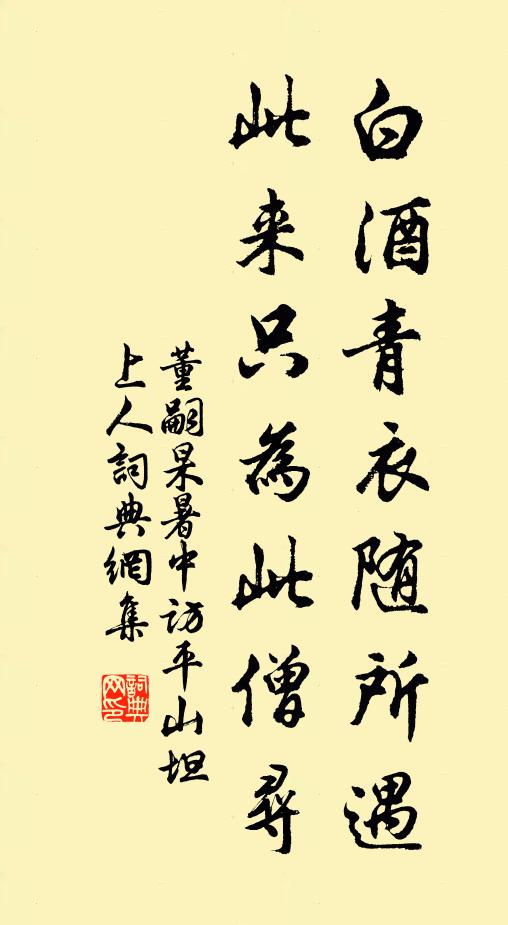 白酒青衣随所遇
此来只為此僧尋
董嗣杲暑中访平山坦
上人詞典網集
詞典网印